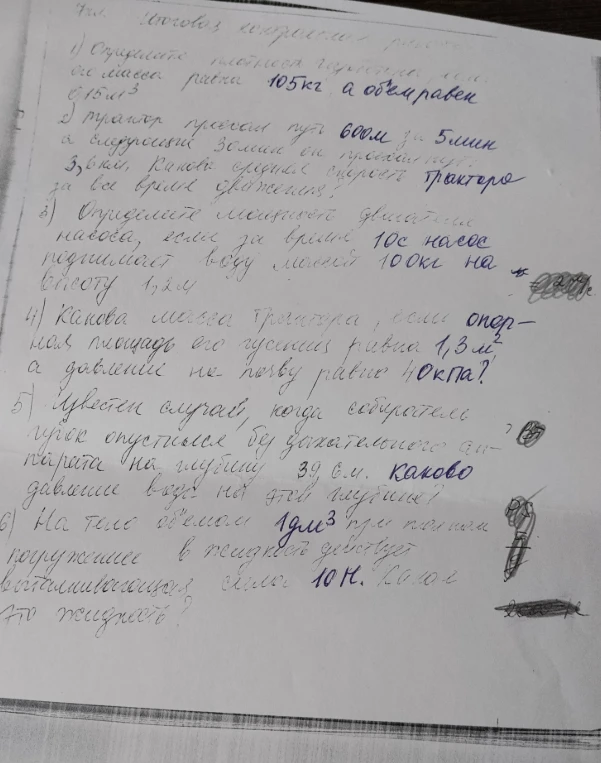 7кл. Итоговая контрольная работа
1) Определите плотность
его масса равна 105кг, а объем равен
0,15м³
2) Трактор проехал путь 600м за 5мин
а следующий 30мин он проехал путь
3,6км. Какова средняя скорость трактора
за все время движения?
3) Определите мощность двигателя
насоса, если за время 10с насос
поднимает воду массой 100кг на
высоту 1,2м
4) Какова масса трактора, если опор-
ная площадь его гусениц равна 1,3м²,
а давление на почву равно 40кПа?
5) Известен случай, когда собиратель
губок опустился без дыхательного ап-
парата на глубину 39 м. Каково
давление воды на этой глубине?
6) На тело объемом 1дм³ при полном
погружение в жидкость действует
выталкивающая сила 10Н. Какая
это жидкость?